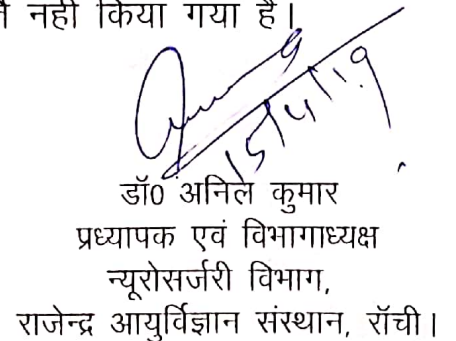 नही किया गया है।
15/4/19
डॉ0 अनिल कुमार
प्रध्यापक एवं विभागाध्यक्ष
न्यूरोसर्जरी विभाग,
राजेन्द्र आयुर्विज्ञान संस्थान, रॉची।